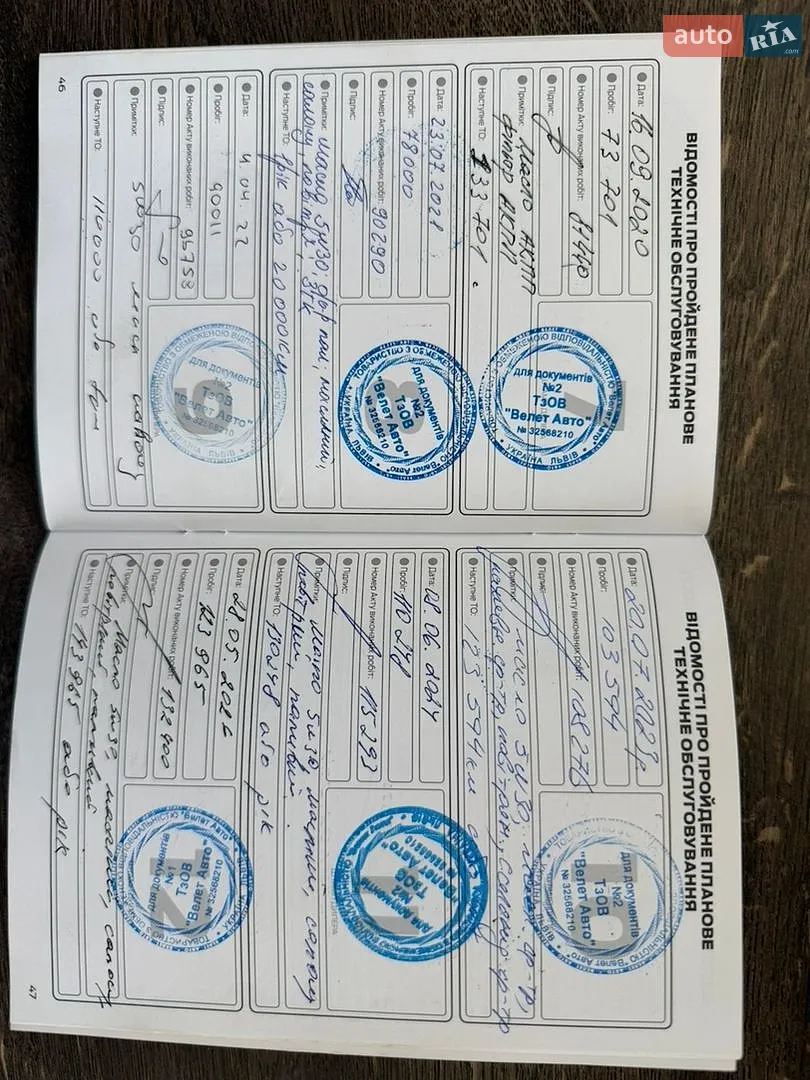 auto RIA.com
ВІДОМОСТІ ПРО ПРОЙДЕНЕ ПЛАНОВЕ
ТЕХНІЧНЕ ОБСЛУГОВУВАННЯ
Дата: 16 09.2020
Пробіг: 73 701
Номер Акту виконаних робіт: 81440
Підпис:
Примітки: Масло АКПП
фільтр АКПП
Наступне ТО: 133 701.
7
ТОВАРИСТВО З ОБМЕЖЕНОЮ ВІДПОВІДАЛЬНІСТЮ "Велет Авто"
для документів
№2
ТзОВ
"Велет Авто"
№ 32568210
УКРАЇНА ЛЬВІВ
Дата: 23.07.2021
Пробіг: 78000
Номер Акту виконаних робіт: 90290
Підпис:
Примітки: масло 5w30, масляний,
салону, повітря
Наступне ТО: 1рік або 20 000км
8
ТОВАРИСТВО З ОБМЕЖЕНОЮ ВІДПОВІДАЛЬНІСТЮ "Велет Авто"
для документів
№2
ТзОВ
"Велет Авто"
№ 32568210
УКРАЇНА ЛЬВІВ
Дата: 4 04. 22
Пробіг: 90011
Номер Акту виконаних робіт: 96758
Підпис:
Примітки: 5w30 масл салону
Наступне ТО: 110000 або
9
для документів
№2
ТзОВ
"Велет Авто"
№ 32568210
УКРАЇНА ЛЬВІВ
46
ВІДОМОСТІ ПРО ПРОЙДЕНЕ ПЛАНОВЕ
ТЕХНІЧНЕ ОБСЛУГОВУВАННЯ
Дата: 20.07.2023р
Пробіг: 103 594
Номер Акту виконаних робіт: 108276
Підпис:
Примітки: масло 5W30
Наступне ТО: 123 594 км
10
для документів
№2
ТзОВ
"Велет Авто"
№ 32568210
УКРАЇНА ЛЬВІВ
Дата: 08 06. 2024
Пробіг: 110248
Номер Акту виконаних робіт: 115293
Підпис:
Примітки: масло 5w30, масляний, салону
повітряний, паливний.
Наступне ТО: 130248 або рік
11
для документів
№2
ТзОВ
"Велет Авто"
№ 32568210
Дата: 28.05
Пробіг: 123 965
Номер Акту виконаних робіт: 132400
Підпис:
Примітки: Масло 5w30, масляний, салону
повітряний, паливний
Наступне ТО: 143 965 або рік
12
для документів
№1
ТзОВ
"Велет Авто"
№ 32568210
УКРАЇНА ЛЬВІВ
47